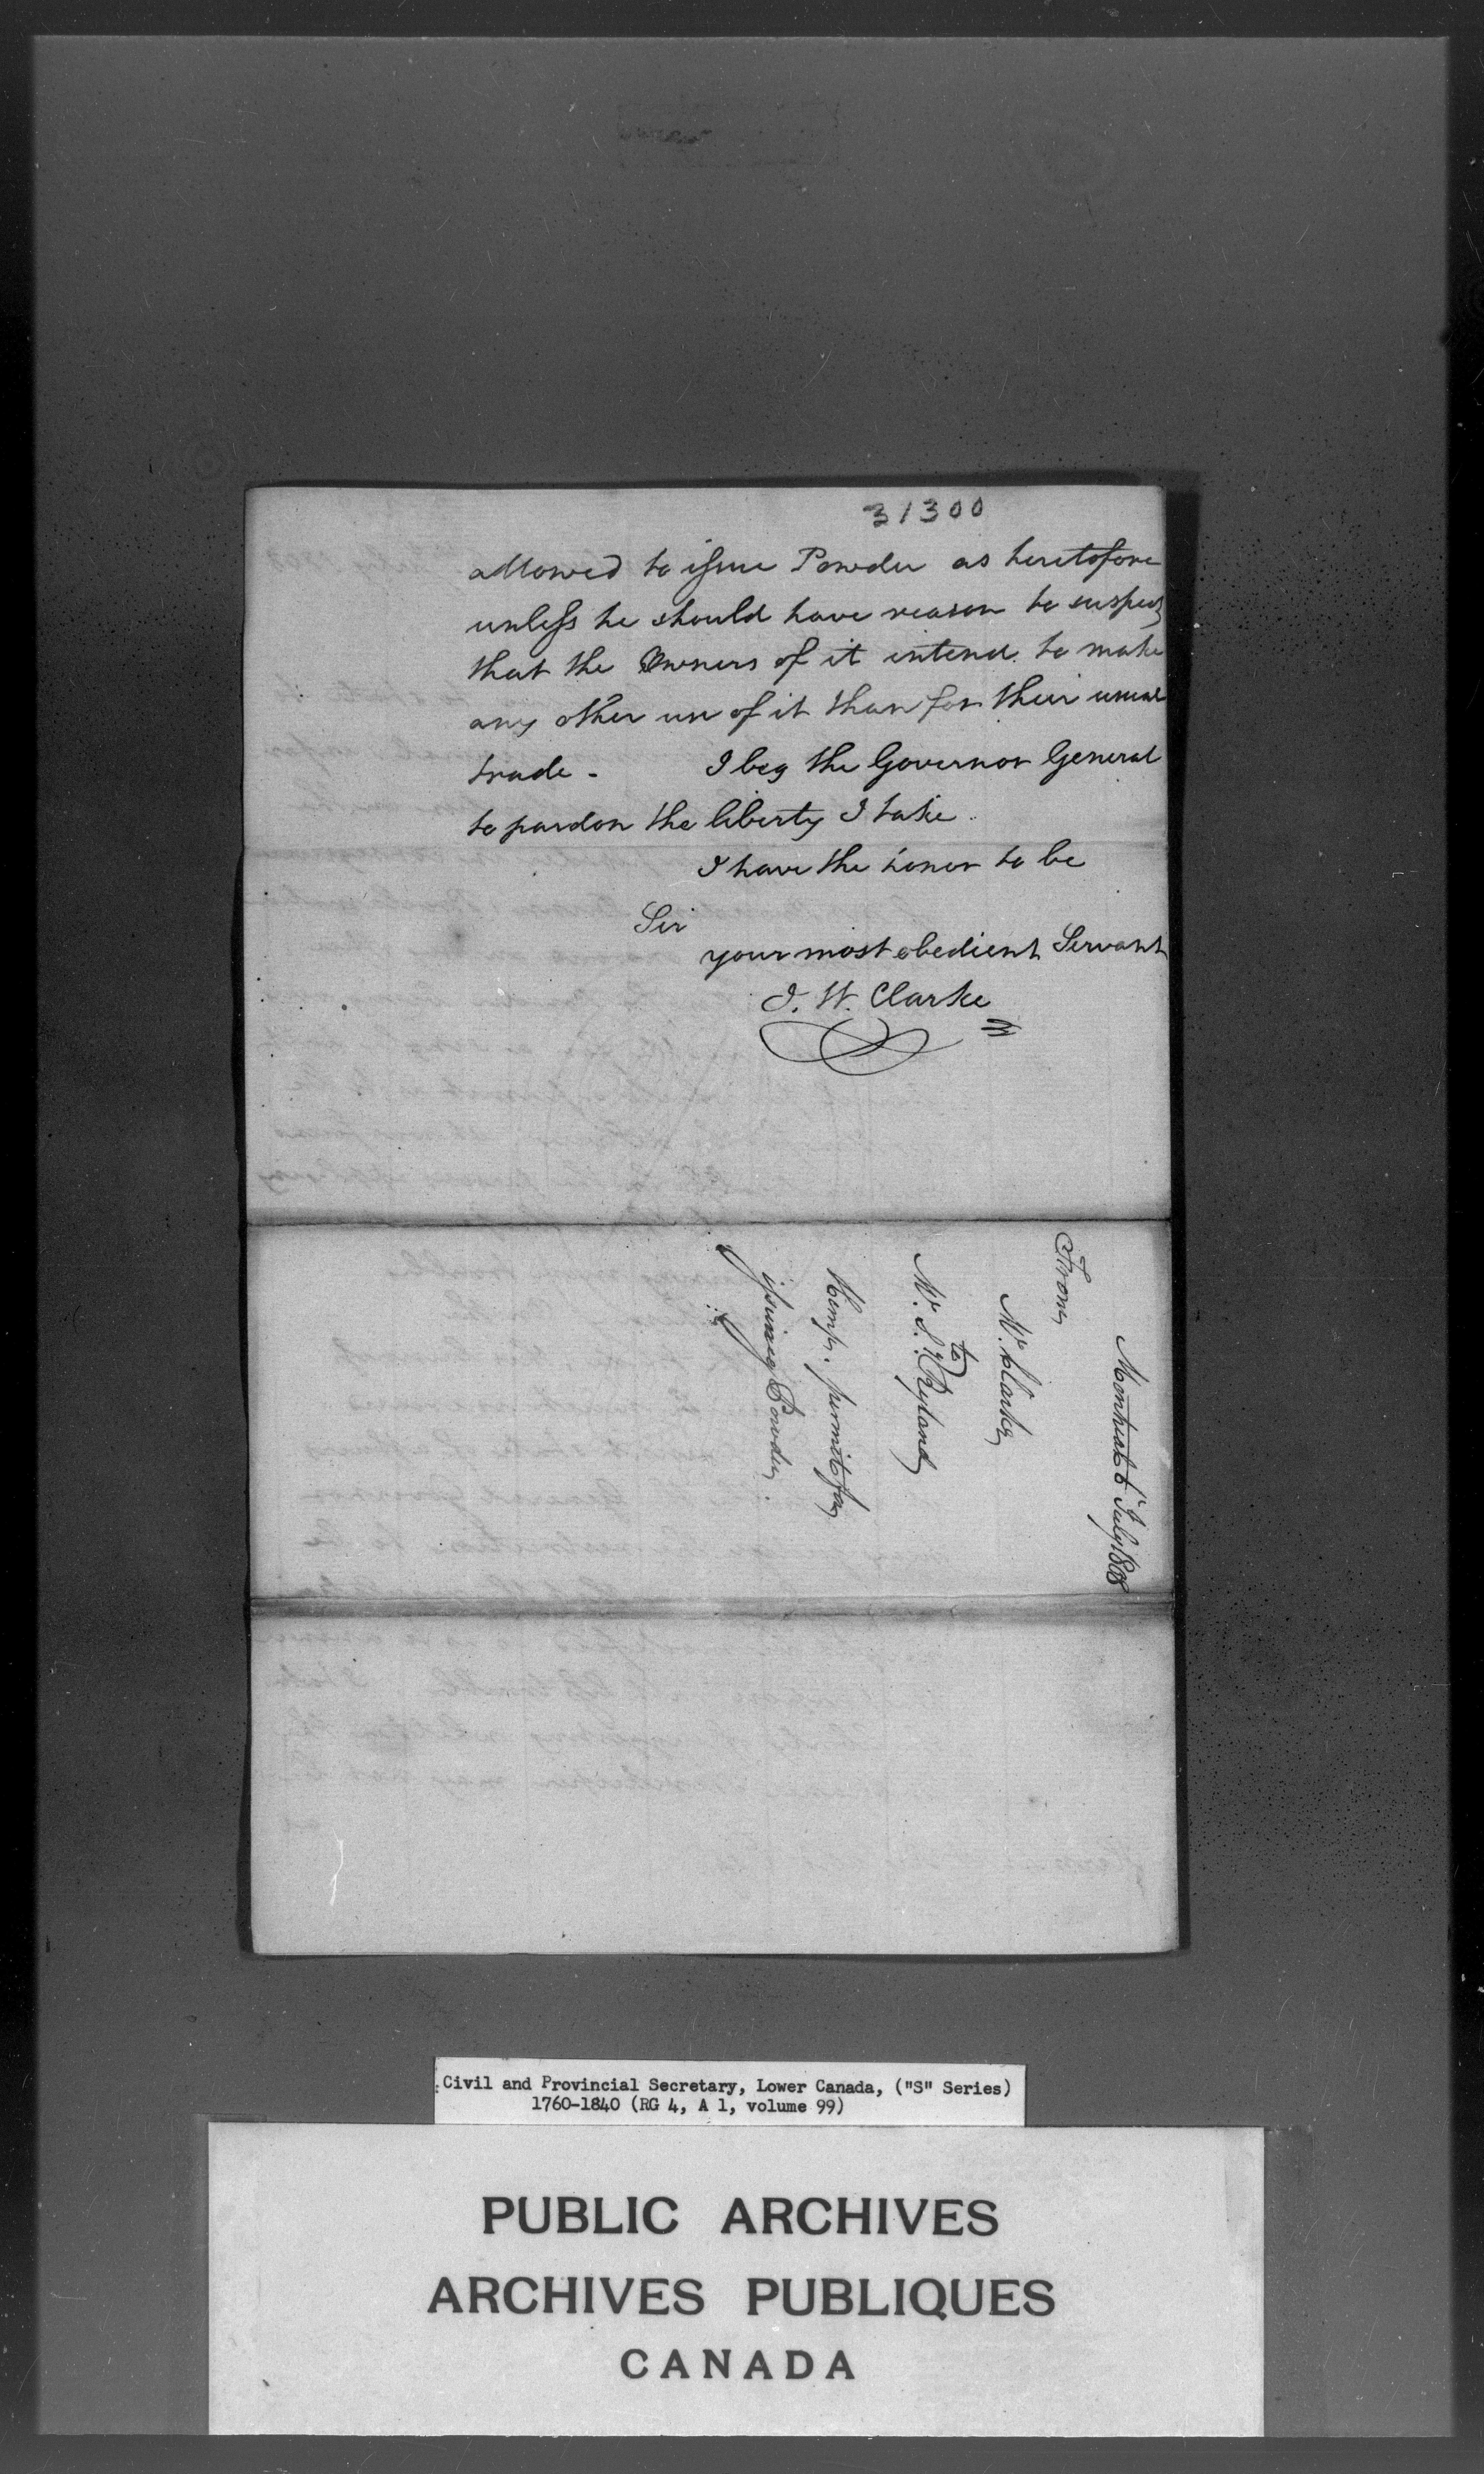 31300
allowed to issue Powder as heretofore
unless he should have reason to suspect
that the Owners of it intend to make
any other use of it than for their usual
trade - I beg the Governor General
to pardon the liberty I take.
I have the honor to be
Sir
your most obedient Servant
I. W. Clarke
Montreal 6th July 1808
From
Mr. Clarke
to
Mr. Ryland
permit for
issuing Powder.
Civil and Provincial Secretary, Lower Canada, ("S" Series)
1760-1840 (RG 4, A 1, volume 99)
PUBLIC ARCHIVES
ARCHIVES PUBLIQUES
CANADA